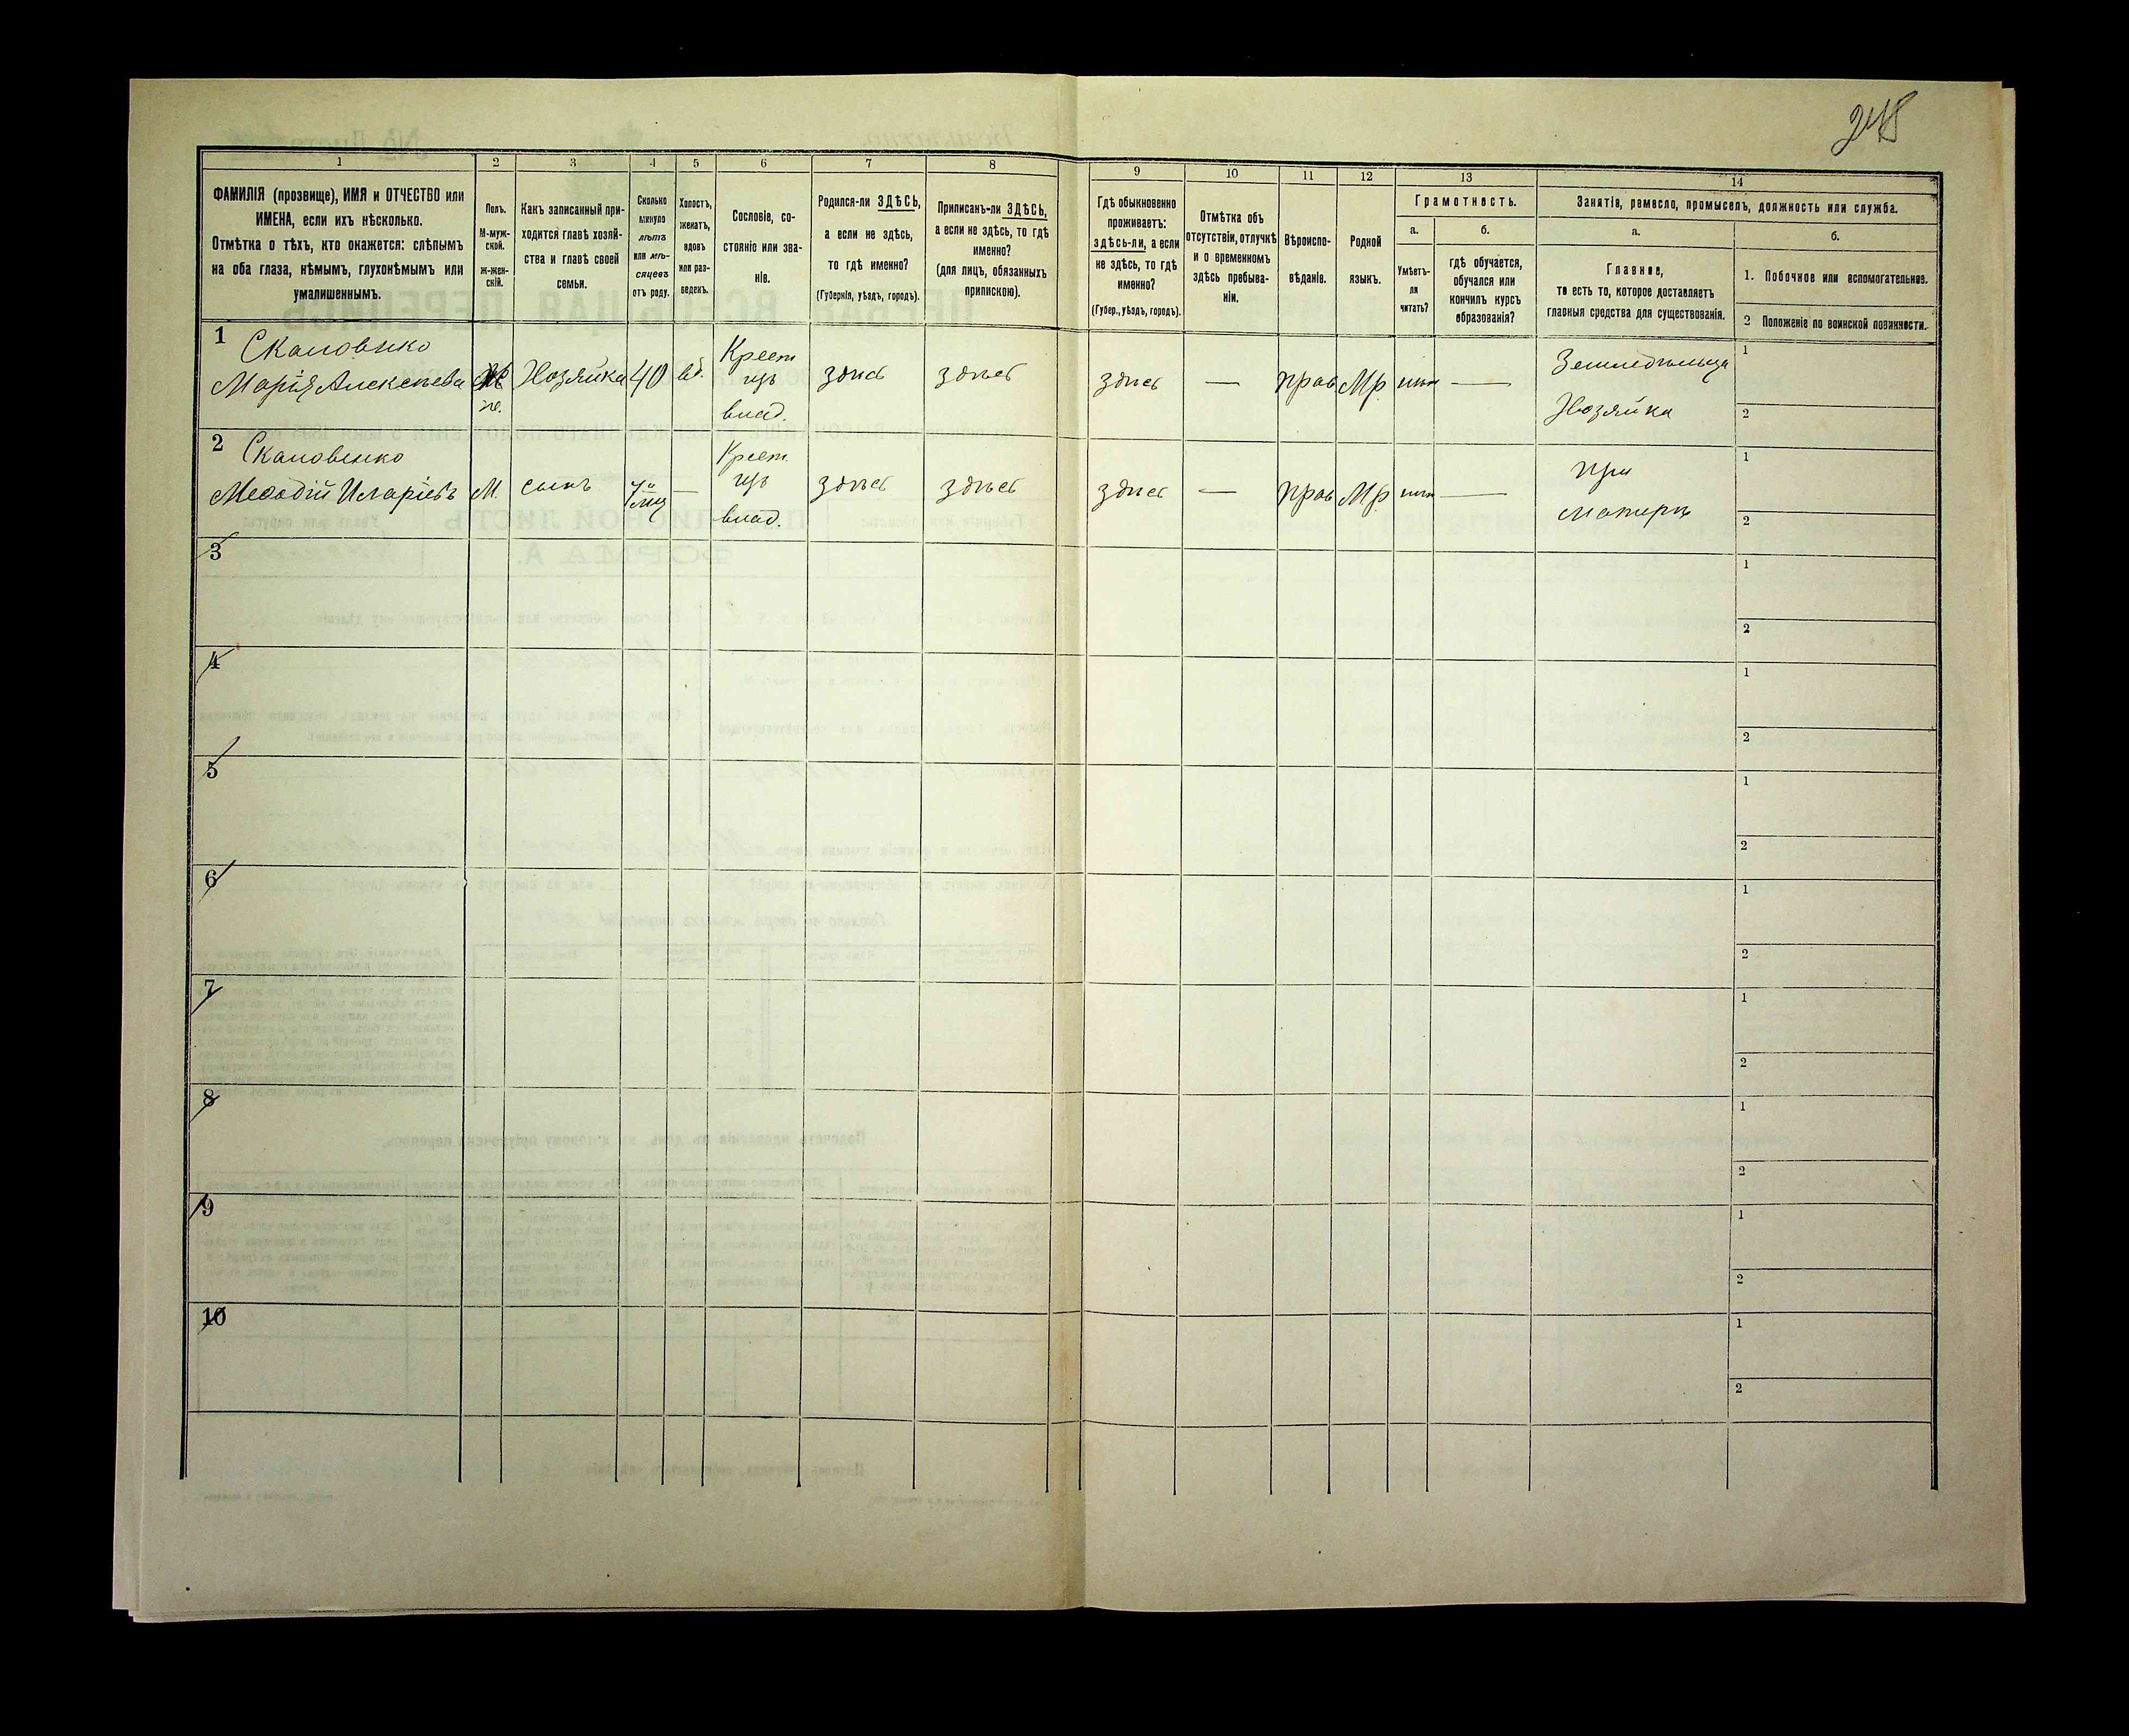 248
1
2
3
4
5
6
7
8
9
10
11
12
13
14
ФАМИЛІЯ (прозвище), ИМЯ и ОТЧЕСТВО или
ИМЕНА, если ихъ нѣсколько.
Отмѣтка о тѣхъ, кто окажется: слѣпымъ
на оба глаза, нѣмымъ, глухонѣмымъ или
умалишеннымъ.
Полъ.
М-муж-
ской.
ж-жен-
скій.
Какъ записанный при-
ходится главѣ хозяй-
ства и главѣ своей
семьи.
Сколько
минуло
лѣтъ
или мѣ-
сяцевъ
отъ роду.
Холостъ,
женатъ,
вдовъ
или раз-
веденъ.
Сословіе, со-
стояніе или зва-
ніе.
Родился-ли ЗДѢСЬ,
а если не здѣсь,
то гдѣ именно?
(Губернія, уѣздъ, городъ).
Приписанъ-ли ЗДѢСЬ,
а если не здѣсь, то гдѣ
именно?
(для лицъ, обязанныхъ
припискою).
Гдѣ обыкновенно
проживаетъ:
здѣсь-ли, а если
не здѣсь, то гдѣ
именно?
(Губер., уѣздъ, городъ).
Отмѣтка объ
отсутствіи, отлучкѣ
и о временномъ
здѣсь пребыва-
ніи.
Вѣроиспо-
вѣданіе.
Родной
языкъ.
Грамотность.
а.
Умѣетъ-
ли
читать?
б.
гдѣ обучается,
обучался или
кончилъ курсъ
образованія?
Занятіе, ремесло, промыселъ, должность или служба.
а.
Главное,
то есть то, которое доставляетъ
главныя средства для существованія.
б.
1. Побочное или вспомогательное.
2 Положеніе по воинской повинности.
1
Скаловенко
Марія Алексѣева
ж.
Хозяйка
40
вд.
Крест
изъ
влад.
здѣсь
здѣсь
здѣсь
—
прав
Мр.
нѣт
—
Земледѣлица
Хозяйка
1
2
2
Скаловенко
Меѳодій Иларіевъ
М.
сынъ
7 мц
—
Крест.
изъ
влад.
здѣсь
здѣсь
здѣсь
—
прав
Мр
нѣт
—
При
матери
1
2
3
1
2
4
1
2
5
1
2
6
1
2
7
1
2
8
1
2
9
1
2
10
1
2